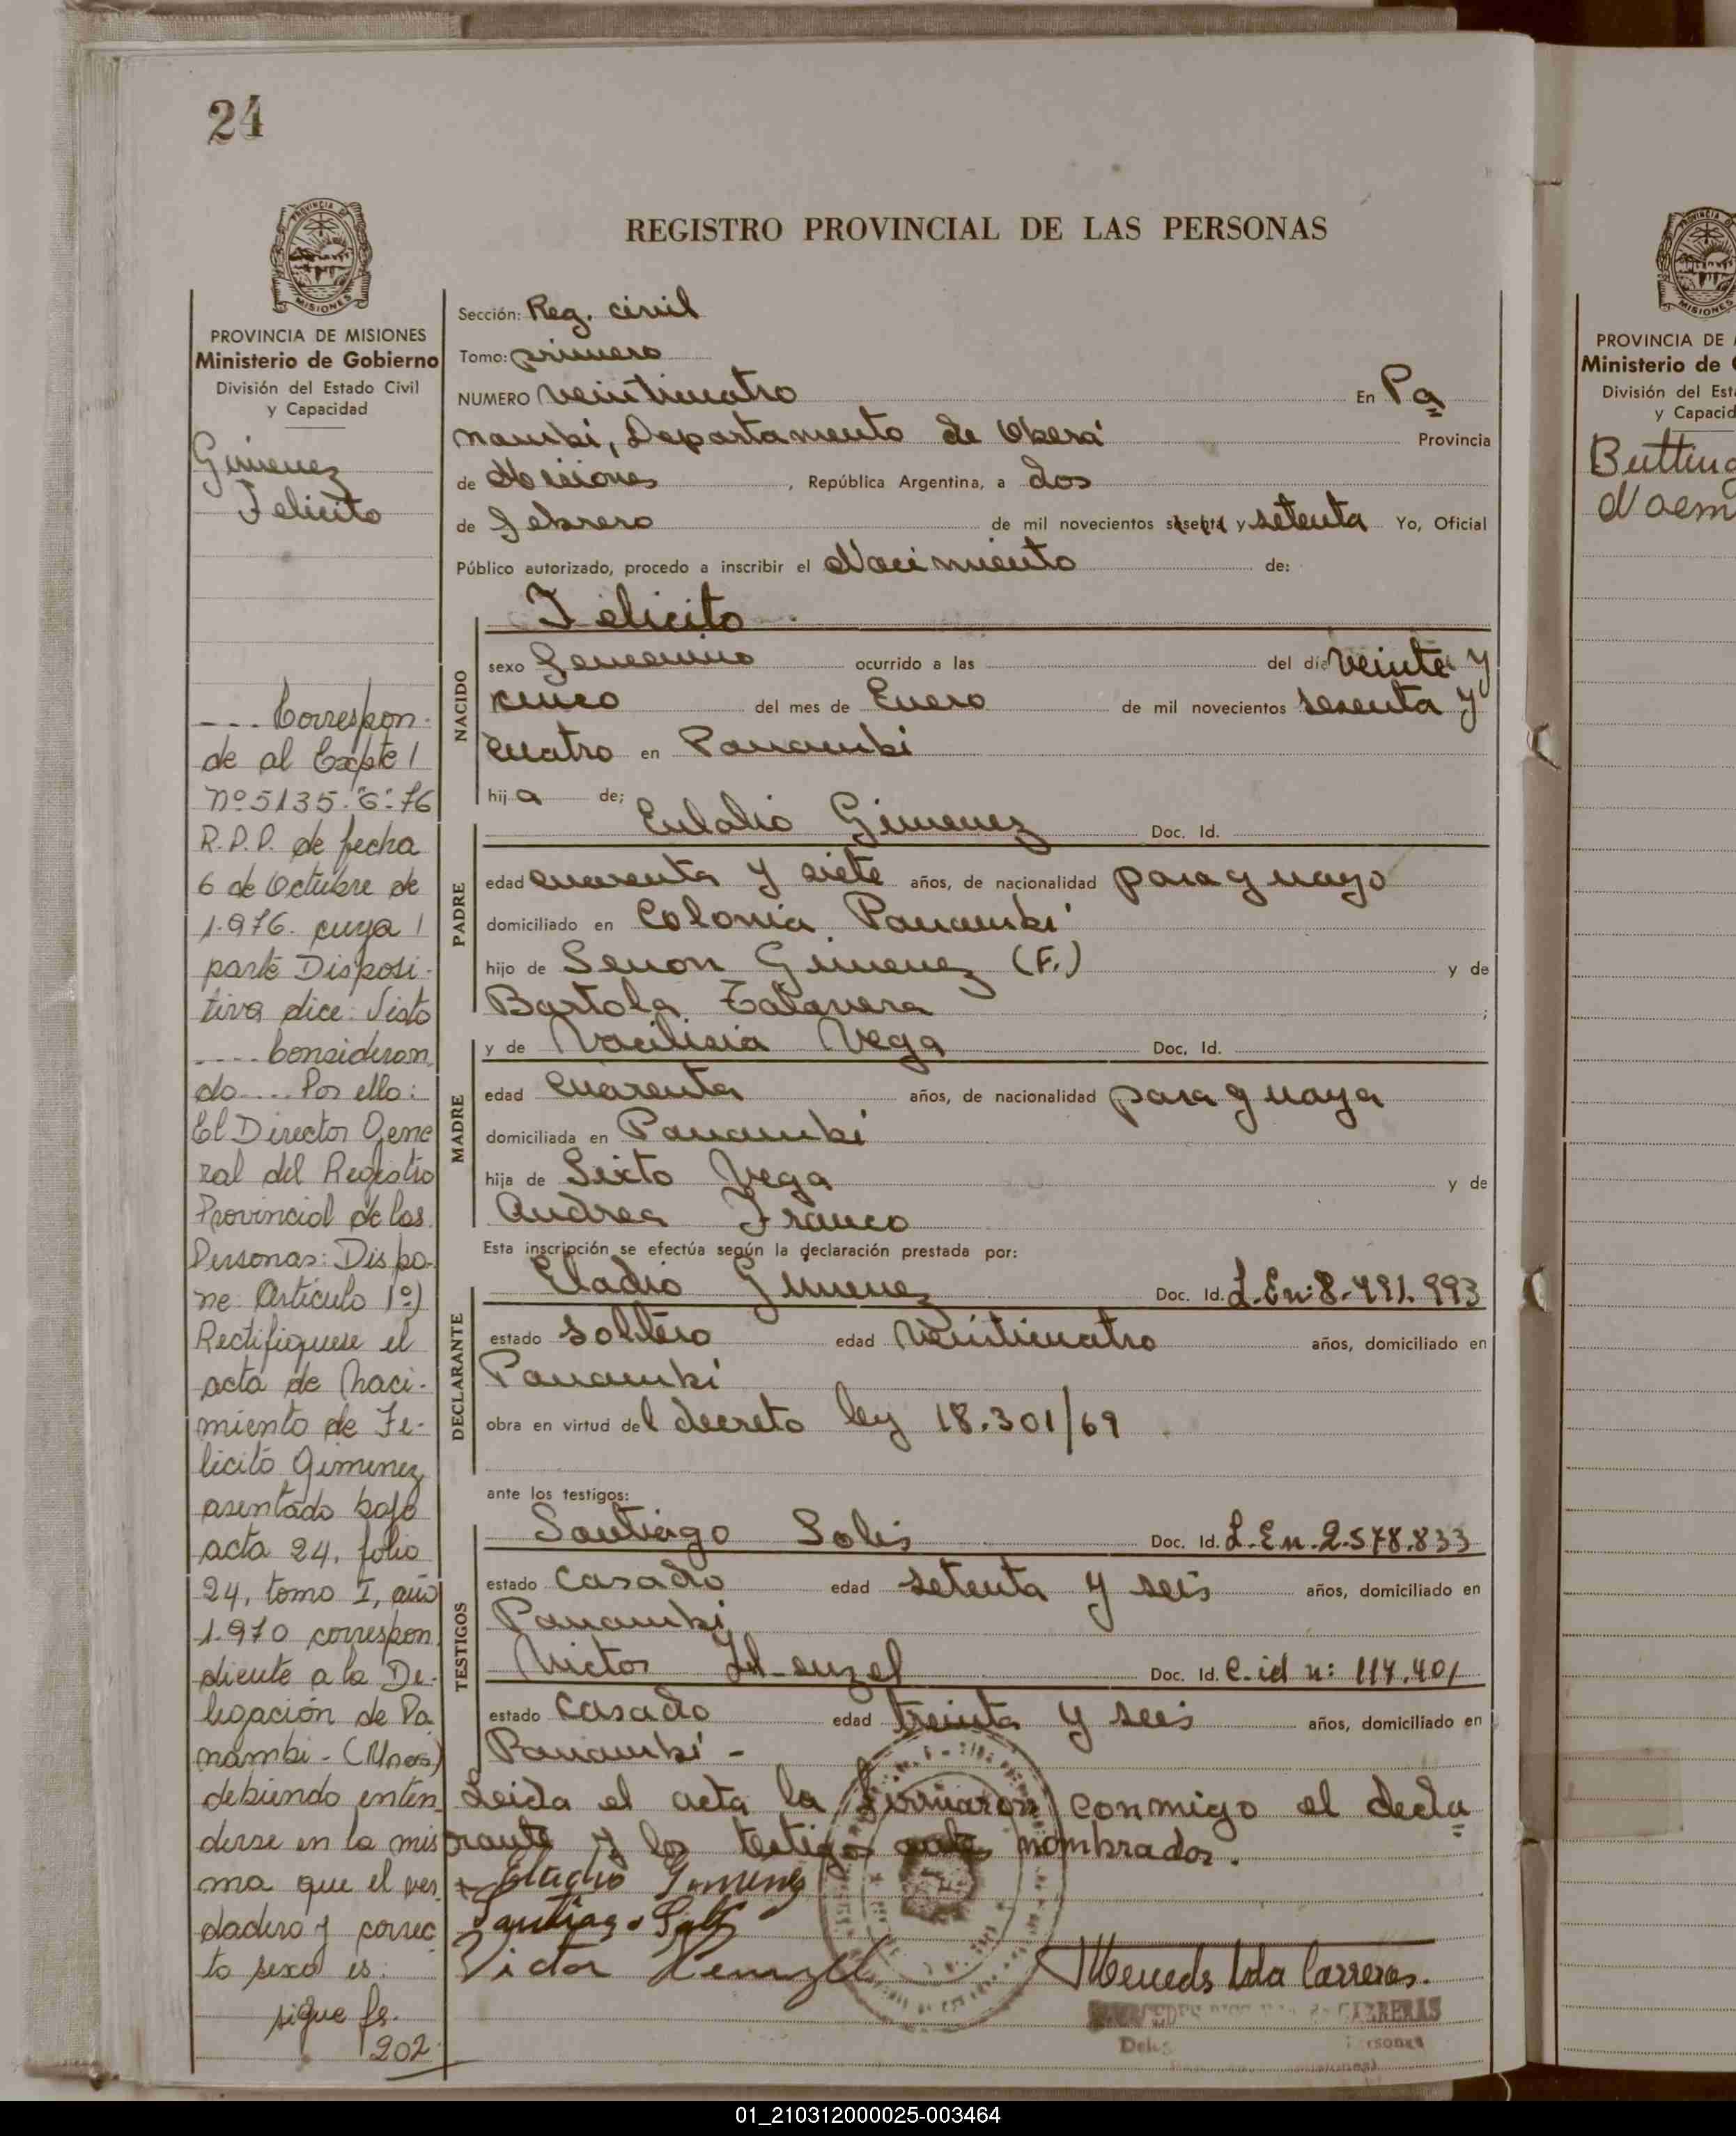 24
REGISTRO PROVINCIAL DE LAS PERSONAS
MISIONES
PROVINCIA DE MISIONES
Ministerio de Gobierno
División del Estado Civil
y Capacidad
Gimenez
Felicito
---- Correspon-
de al Expte
Nº 5135-"G"-76
R.P.P. de fecha
6 de Octubre de
1.976. cuya
parte Disposi-
tiva dice: Visto
---- Consideran
do.... Por ello:
El Director Gene
ral del Registro
Provincial de las
Personas: Dispo-
ne Artículo 1º)
Rectifiquese el
acta de naci-
miento de Fe-
licito Gimenez
asentado bajo
acta 24, folio
24, tomo I, año
1.970 correspon
diente a la De-
legación de Pa
nambi - (Mnes)
debiendo enten
derse en la mis
ma que el ver
dadero y correc
to sexo es:
sigue fs.
202
Sección: Reg. civil
Tomo: primero
NUMERO veinticuatro En Pa
nambi, Departamento de Oberá Provincia
de Misiones, República Argentina, a dos
de febrero de mil novecientos sesenta y setenta Yo, Oficial
Público autorizado, procedo a inscribir el Nacimiento de:
Felicito
NACIDO
sexo femenino ocurrido a las del día veinte y
cinco del mes de Enero de mil novecientos sesenta y
cuatro en Panambi
hija de;
PADRE
Eulalio Gimenez Doc. Id.
edad cuarenta y siete años, de nacionalidad paraguayo
domiciliado en Colonia Panambi
hijo de Senon Gimenez (F.) y de
Bartola Talavera ;
MADRE
y de Vacilicia Vega Doc. Id.
edad cuarenta años, de nacionalidad paraguaya
domiciliada en Panambi
hija de Sixto Vega y de
Andrea Franco
Esta inscripción se efectúa según la declaración prestada por:
DECLARANTE
Eladio Gimenez Doc. Id. L.En: 8.491.993
estado soltero edad veinticuatro años, domiciliado en
Panambi
obra en virtud del decreto ley 18.301/69
ante los testigos:
TESTIGOS
Santiago Solis Doc. Id. L.En. 2.578.833
estado casado edad setenta y seis años, domiciliado en
Panambi
Victor Henzel Doc. Id. C.id n: 114.401
estado casado edad treinta y seis años, domiciliado en
Panambi -
Leida el acta la firmaron conmigo el decla
rante y los testigos ante nombrados.
Eladio Gimenez
Santiago Solis
Victor Henzel
Mercedes Carreras.
CARRERAS
PROVINCIA DE
Ministerio de
División del Est
y Capacid
Butting
Noem
01_210312000025-003464